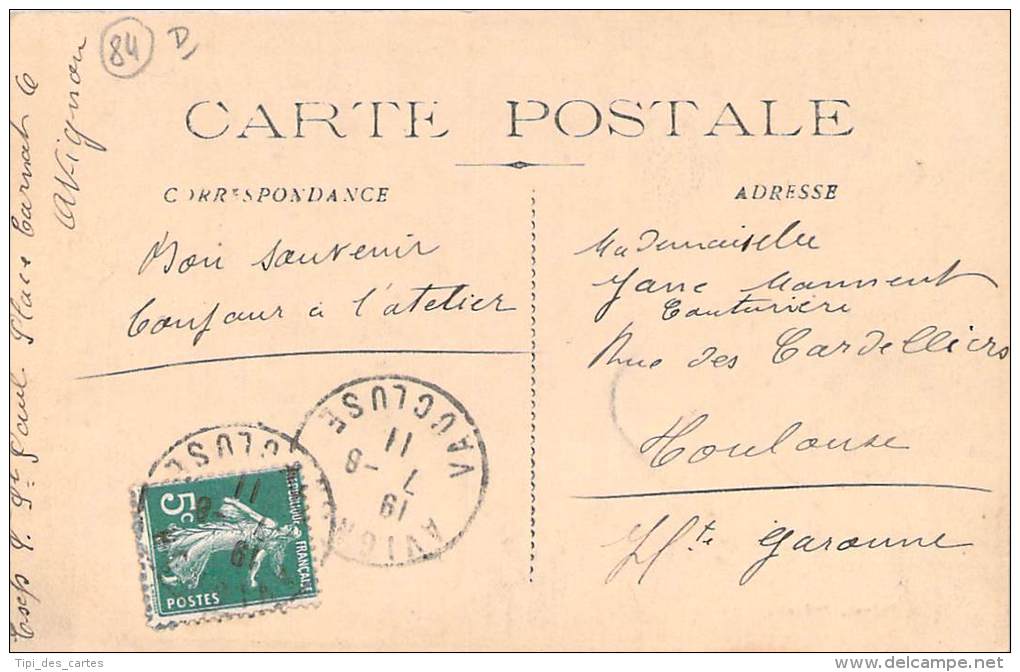 84
D
CARTE POSTALE
CORRESPONDANCE
ADRESSE
Bon souvenir
Bonjour à l'atelier
Mademoiselle
Jane
Couturière
Rue des Cordelliers
Toulouse
Hte Garonne
St Paul Place Carnot 6
Avignon
VAUCLUSE
11
7 -8
19
AVIGNON
5c
REPUBLIQUE
FRANÇAISE
POSTES
Tipi_des_cartes
www.delcampe.net